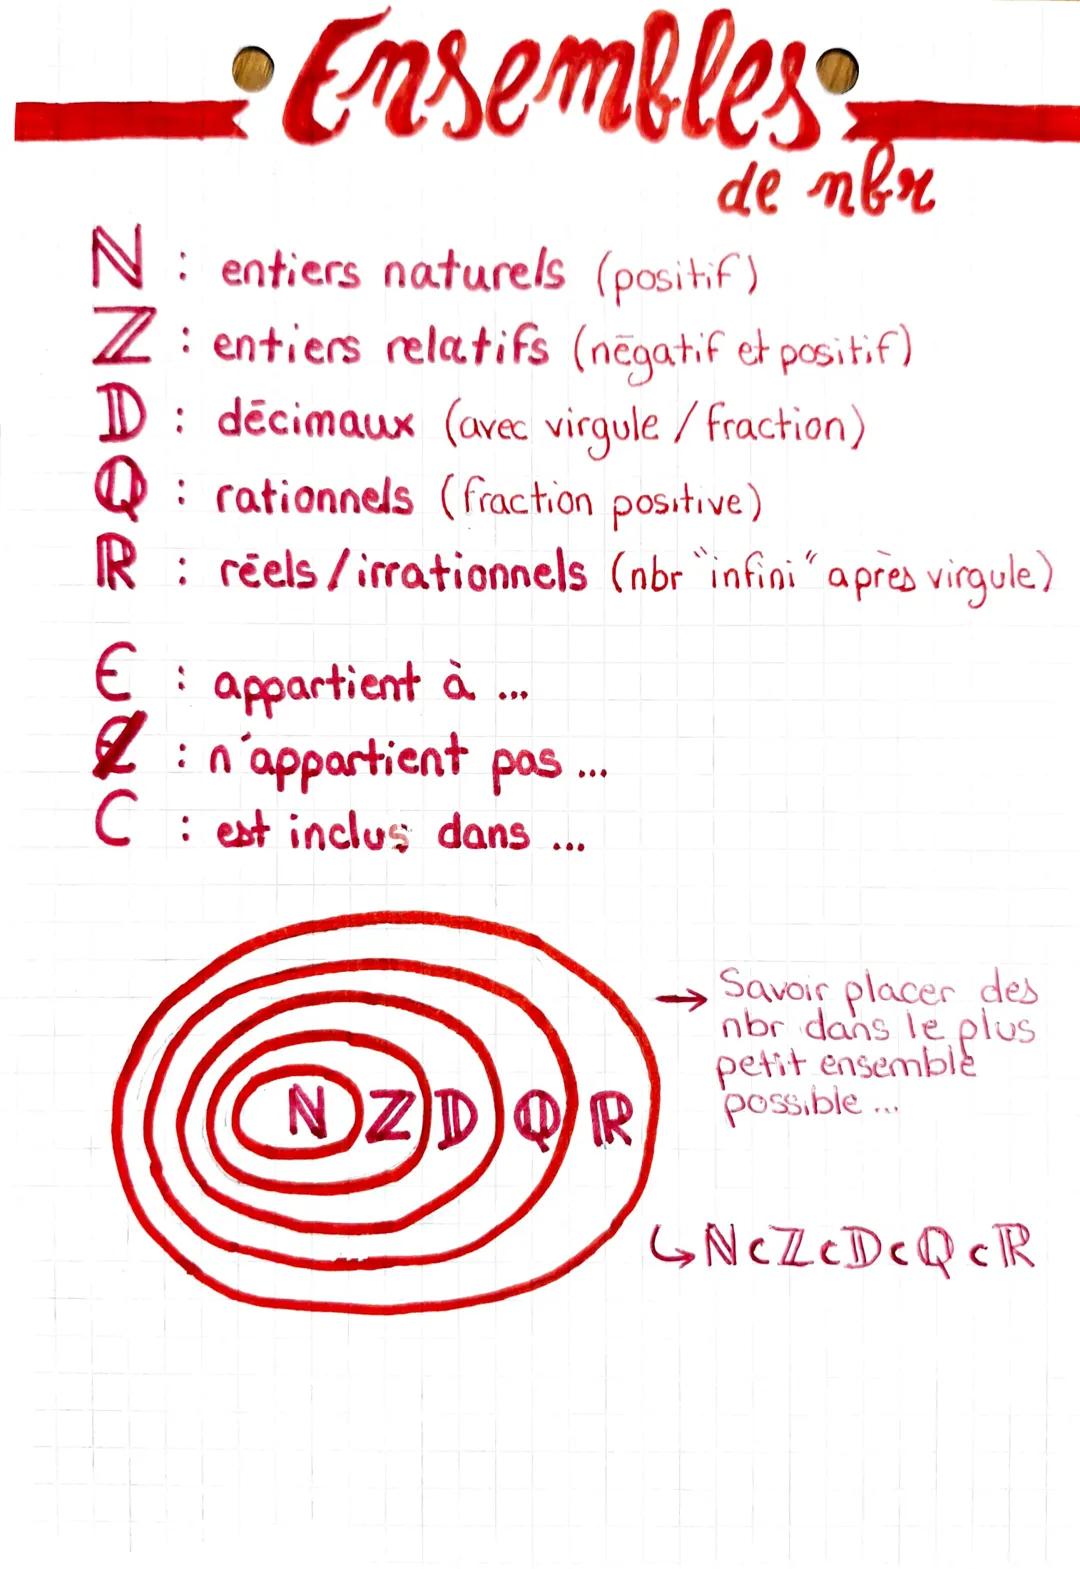 Ensembles
de nbr
ℕ : entiers naturels (positif)
ℤ : entiers relatifs (négatif et positif)
𝔻 : décimaux (avec virgule / fraction)
ℚ : rationnels (fraction positive)
ℝ : réels / irrationnels (nbr "infini" après virgule)
∈ : appartient à ...
∉ : n'appartient pas ...
⊂ : est inclus dans ...
ℕ ℤ 𝔻 ℚ ℝ
→ Savoir placer des
nbr dans le plus
petit ensemble
possible ...
↳ ℕ ⊂ ℤ ⊂ 𝔻 ⊂ ℚ ⊂ ℝ